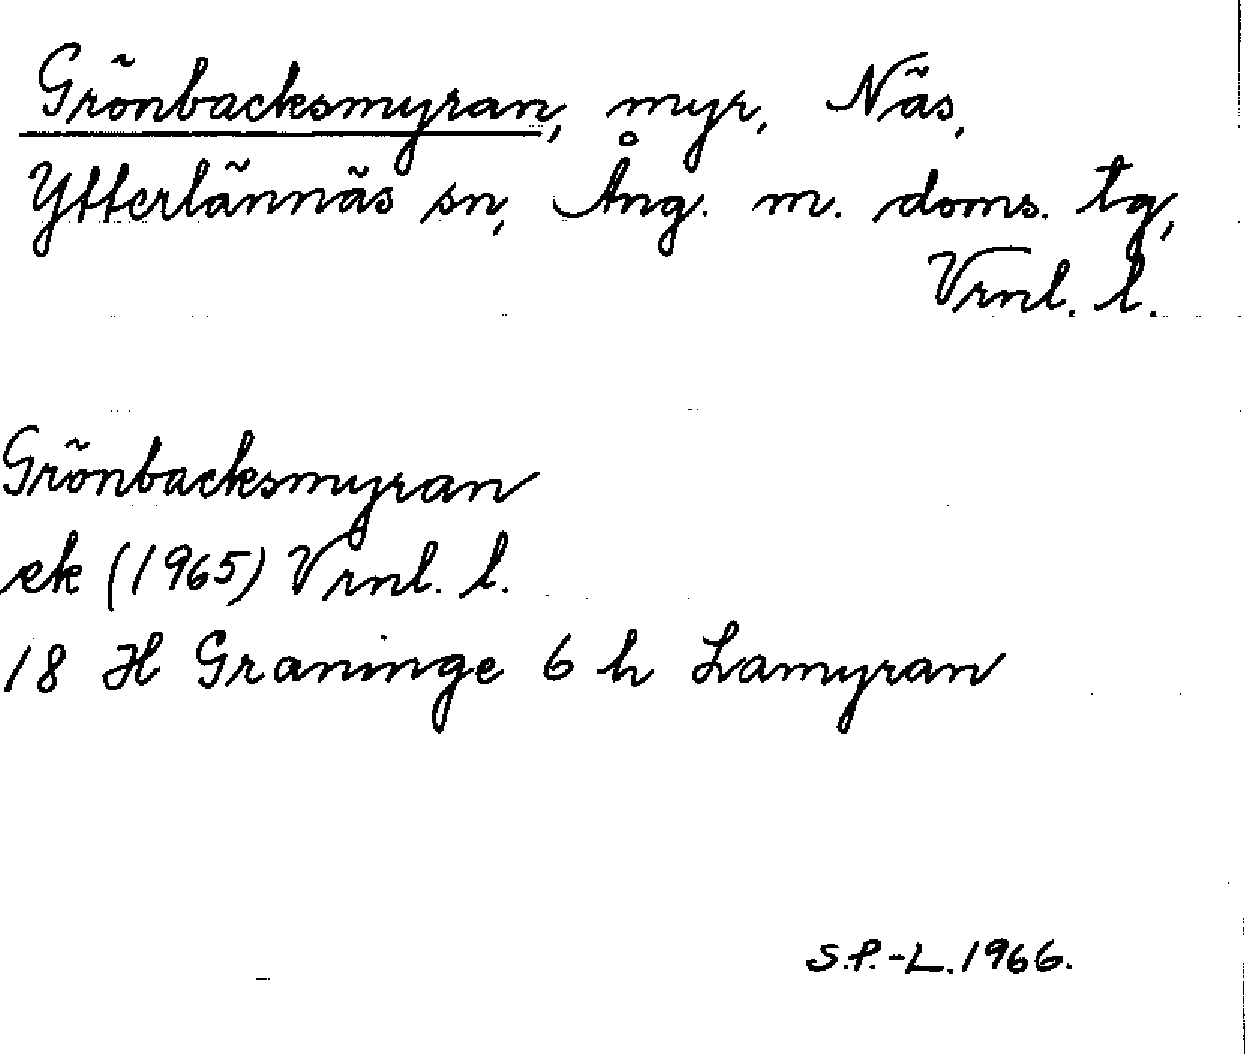 Grönbacksmyran, myr, Näs,
Ytterlännäs sn, Ång. m. doms. tg,
Vrnl. l.
Grönbacksmyran
ek (1965) Vrnl. l.
18 H Graninge 6 h Lamyran
S.P.-L. 1966.